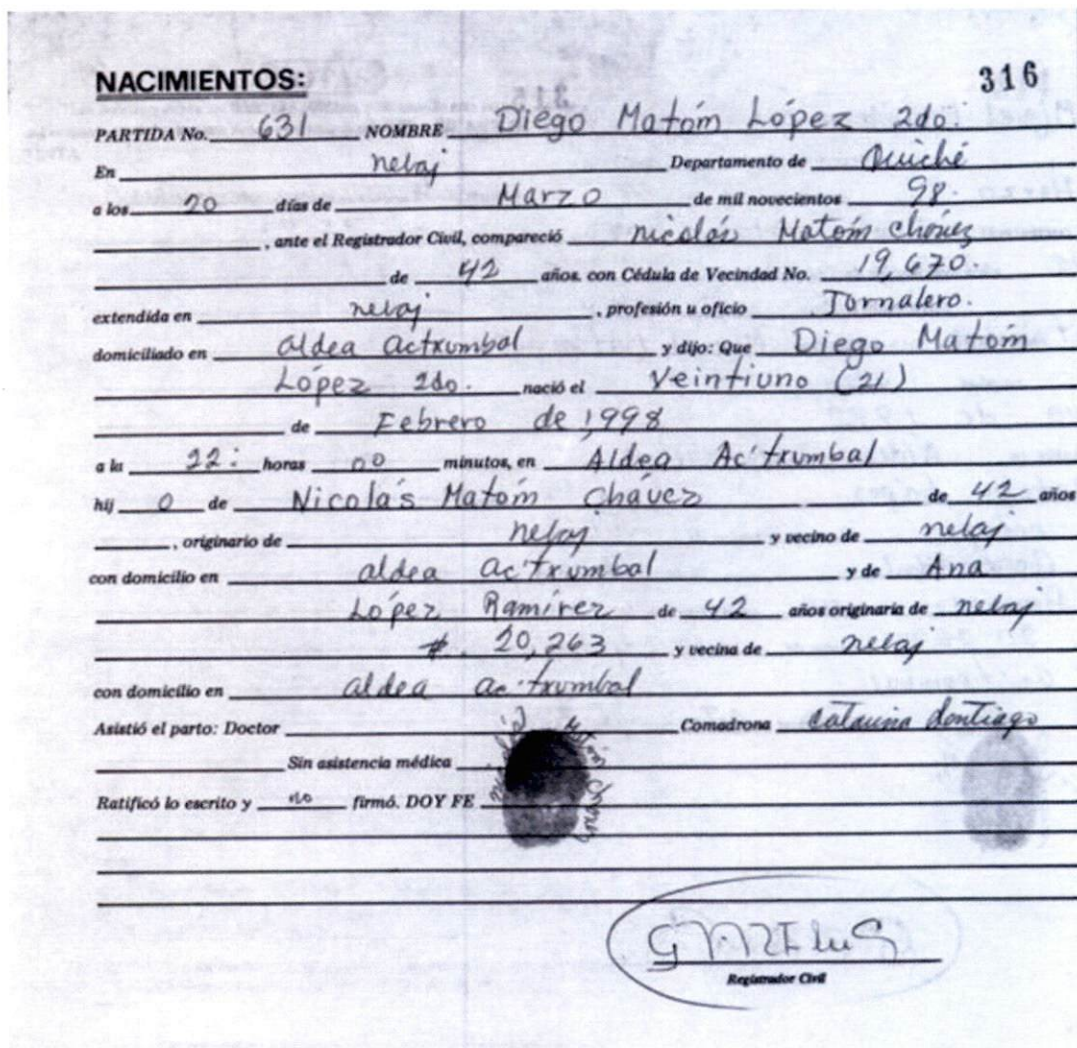 316
NACIMIENTOS:
PARTIDA No. 631 NOMBRE Diego Matóm López 2do.
En nebaj Departamento de Quiché
a los 20 días de Marzo de mil novecientos 98.
, ante el Registrador Civil, compareció nicolás Matóm chávez
de 42 años, con Cédula de Vecindad No. 19,670.
extendida en nebaj , profesión u oficio Jornalero.
domiciliado en aldea Actxumbal y dijo: Que Diego Matóm
López 2do. nació el Veintiuno (21)
de Febrero de 1,998
a las 22: horas 00 minutos, en Aldea Ac'txumbal
hij o de Nicolás Matóm Chávez de 42 años
, originario de nebaj y vecino de nebaj
con domicilio en aldea ac'txumbal y de Ana
López Ramírez de 42 años originaria de nebaj
#. 20,263 y vecina de nebaj
con domicilio en aldea ac'txumbal
Asistió el parto: Doctor Comadrona Catarina Santiago
Sin asistencia médica
Ratificó lo escrito y no firmó. DOY FE
Registrador Civil